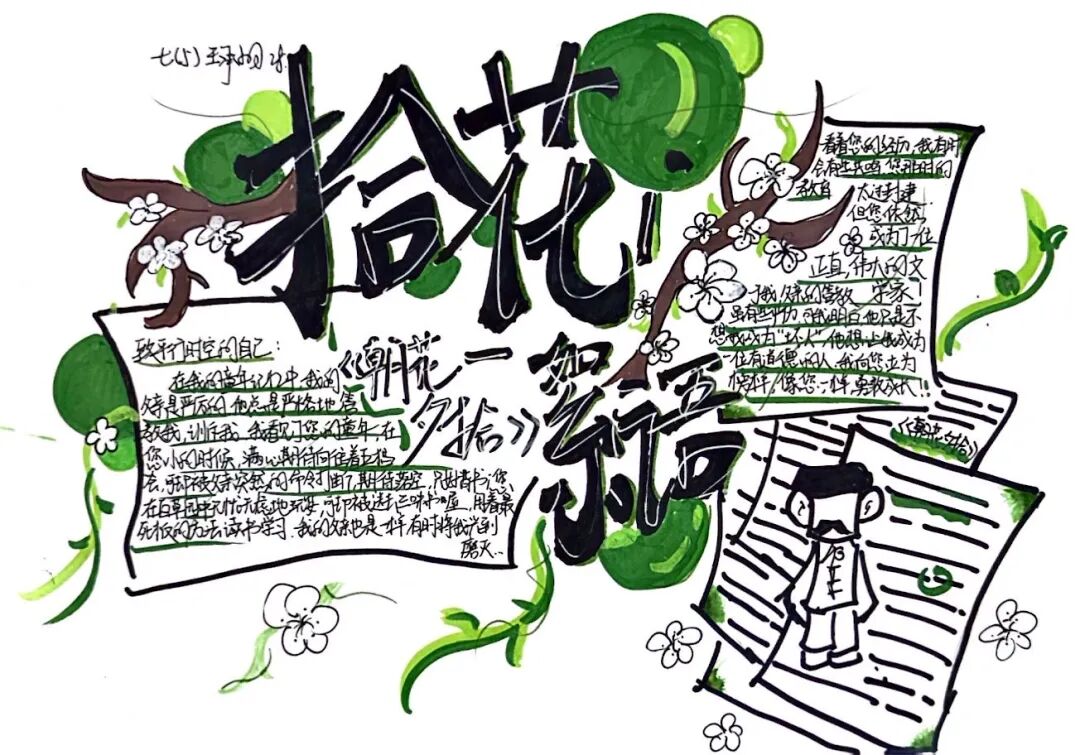 七(5)
拾花
絮语
《朝花夕拾》
致平行时空的自己：
在我的童年记忆中，我的
父亲是严厉的，他总是严格地管
教我，训斥我。我看了您的童年，在
您小的时候，满心期待向往着五猖
会，可却被父亲突然的命令打断了，期待落空，
在百草园中无忧无虑地玩耍，可却被送进三味书屋，用着最
死板的方法读书学习。我的父亲也是一样有时将我
磨灭..
看着您的经历，我有时
会有些共鸣，您那时的
教育太过封建
但您依然
成为了一位
正直、伟大的文
学家！
我父亲的管教
虽有些严厉，可我明白他只是不
想我成为“坏人”，他想让我成为
一位有道德的人，我向您立为
榜样，像您一样勇敢成长！
《朝花夕拾》